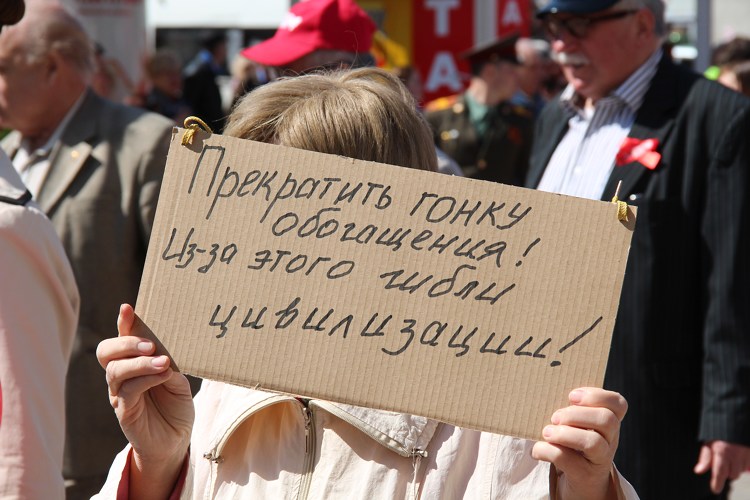 ТА
ТА
Прекратить гонку
обогащения!
Из-за этого гибли
цивилизации!